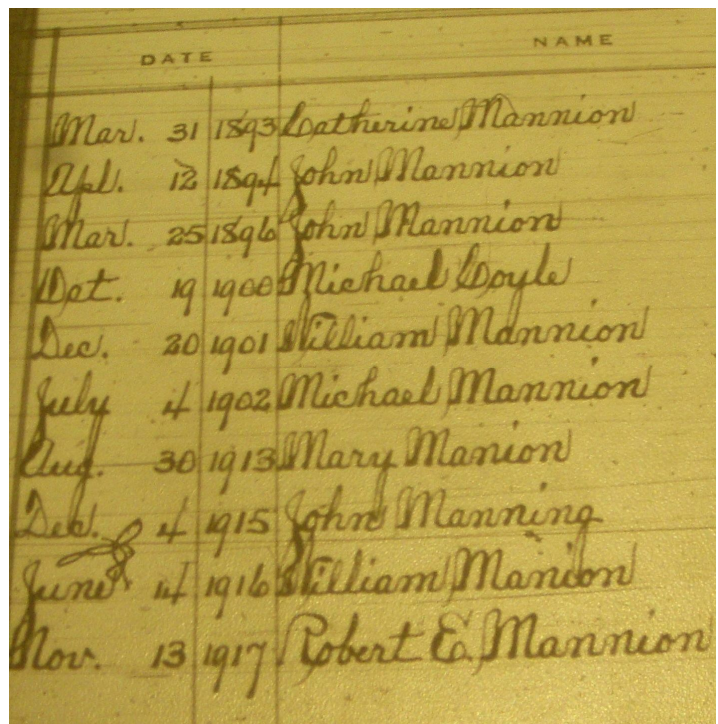 DATE NAME
Mar. 31 1893 Catherine Mannion
Apl. 12 1894 John Mannion
Mar. 25 1896 John Mannion
Oct. 19 1900 Michael Coyle
Dec. 20 1901 William Mannion
July 4 1902 Michael Mannion
Aug. 30 1913 Mary Manion
Dec. 4 1915 John Manning
June 4 1916 William Manion
Nov. 13 1917 Robert E. Mannion